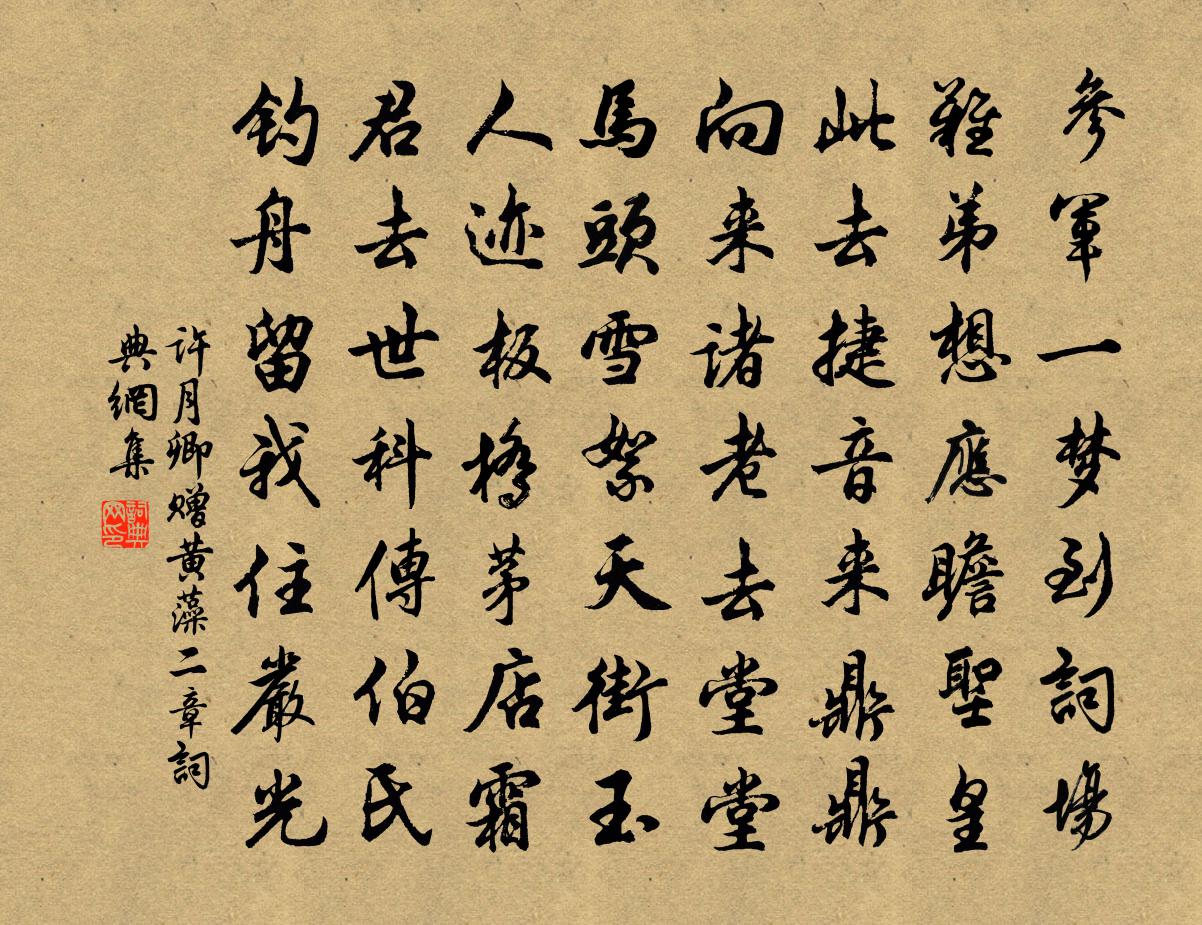 參軍一梦到詞場
難弟想應瞻聖皇
此去捷音来鼎鼎
向来诸老去堂堂
馬頭雪絮天街玉
人迹板橋茅店霜
君去世科傳伯氏
钓舟留我住嚴光
许月卿赠黄藻二章詞
典網集
詞典网印